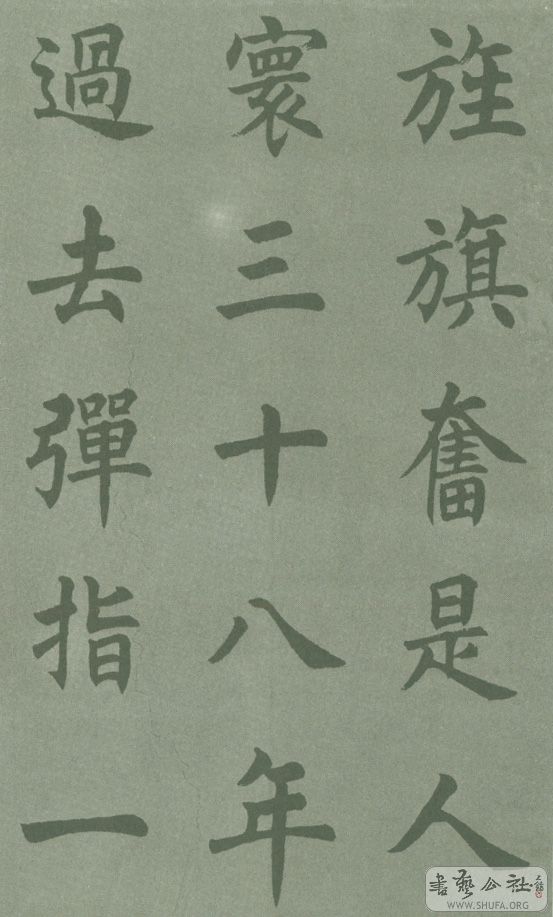 旌旗奮是人
寰三十八年
過去彈指一
書藝公社
WWW.SHUFA.ORG